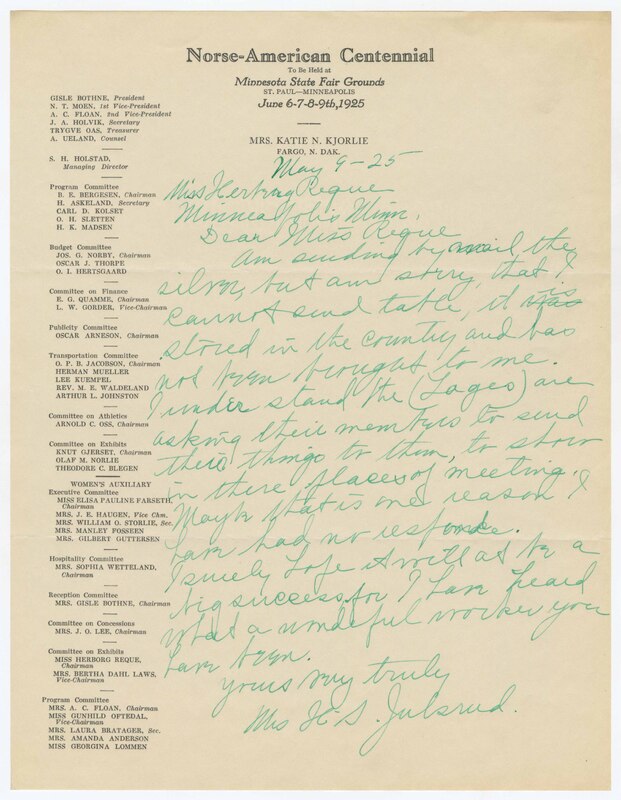 Norse-American Centennial
To Be Held at
Minnesota State Fair Grounds
ST. PAUL—MINNEAPOLIS
June 6-7-8-9th, 1925
GISLE BOTHNE, President
N. T. MOEN, 1st Vice-President
A. C. FLOAN, 2nd Vice-President
J. A. HOLVIK, Secretary
TRYGVE OAS, Treasurer
A. UELAND, Counsel
S. H. HOLSTAD,
Managing Director
Program Committee
B. E. BERGESEN, Chairman
H. ASKELAND, Secretary
CARL D. KOLSET
O. H. SLETTEN
H. K. MADSEN
Budget Committee
JOS. G. NORBY, Chairman
OSCAR J. THORPE
O. I. HERTSGAARD
Committee on Finance
E. G. QUAMME, Chairman
L. W. GORDER, Vice-Chairman
Publicity Committee
OSCAR ARNESON, Chairman
Transportation Committee
O. P. B. JACOBSON, Chairman
HERMAN MUELLER
LEE KUEMPEL
REV. M. E. WALDELAND
ARTHUR L. JOHNSTON
Committee on Athletics
ARNOLD C. OSS, Chairman
Committee on Exhibits
KNUT GJERSET, Chairman
OLAF M. NORLIE
THEODORE C. BLEGEN
WOMEN'S AUXILIARY
Executive Committee
MISS ELISA PAULINE FARSETH,
Chairman
MRS. J. E. HAUGEN, Vice Chm.
MRS. WILLIAM O. STORLIE, Sec.
MRS. MANLEY FOSSEEN
MRS. GILBERT GUTTERSEN
Hospitality Committee
MRS. SOPHIA WETTELAND,
Chairman
Reception Committee
MRS. GISLE BOTHNE, Chairman
Committee on Concessions
MRS. J. O. LEE, Chairman
Committee on Exhibits
MISS HERBORG REQUE,
Chairman
MRS. BERTHA DAHL LAWS,
Vice-Chairman
Program Committee
MRS. A. C. FLOAN, Chairman
MISS GUNHILD OFTEDAL,
Vice-Chairman
MRS. LAURA BRATAGER, Sec.
MRS. AMANDA ANDERSON
MISS GEORGINA LOMMEN
MRS. KATIE N. KJORLIE
FARGO, N. DAK.
May 9-25
Miss Herbrug Reque
Minneapolis Minn,
Dear Miss Reque
Am sending by mail the
silver, but am sorry, that I
cannot send table, it was is
stored in the country and has
not been brought to me.
I under stand the (Loges) are
asking their members to send
their things to them, to show
in there places of meeting.
Maybe that is one reason I
have had no responde.
I surely hope it will as be a
big success for I have heard
what a wonderful worker you
have been.
Yours very truly
Mrs H. S. Julsrud.